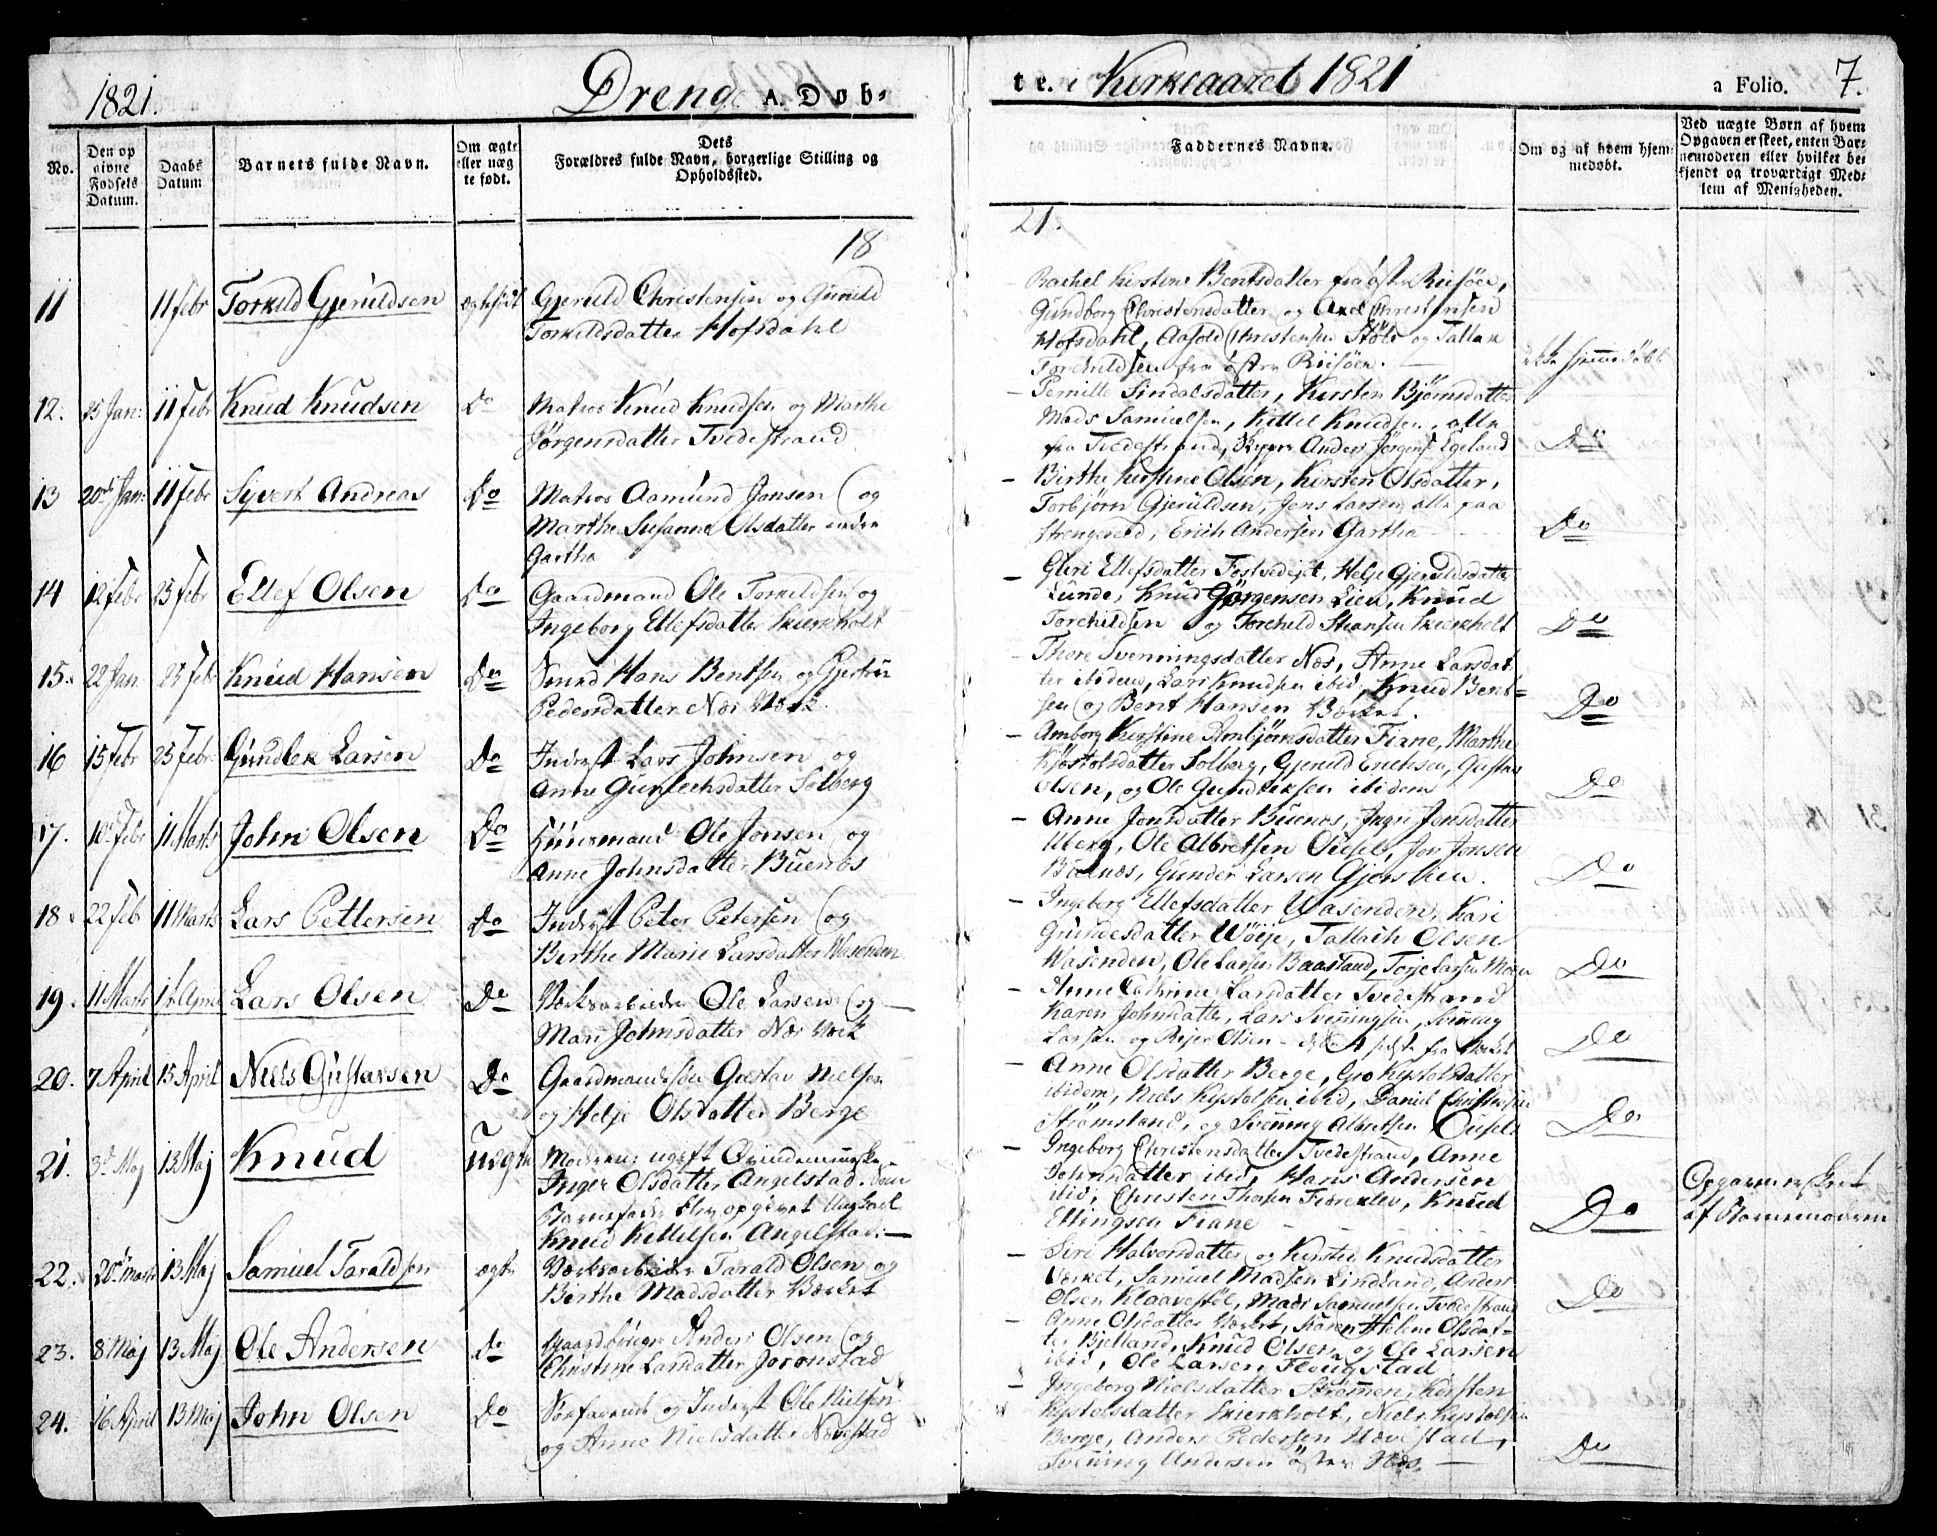 1821.
Drenge A. Døb-
No.
Den op
givne
Fødsels
Datum.
Daabs
Datum
Barnets fulde Navn.
Om ægte
eller uæg
te født.
Dets
Forældres fulde Navn, borgerlige Stilling og
Opholdssted.
18
11
11 Febr
Torkild Gjeruldsen
Gjeruld Christensen og Gunild
Torkildsdatter Hofsdahl
12.
25 Jan:
11 Febr
Knud Knudsen
Do
Matros Knud Knudsen og Marthe
Jørgensdatter Tvedestrand
13
20de Jan:
11 Febr
Syvert Andreas
Do
Matros Aamund Jonsen og
Marthe Susanne Olsdatter
Gartha
14
12 Febr
25 Febr
Ellef Olsen
Do
Gaardmand Ole Torkildsen og
Ingeborg Ellefsdatter Skierkholt
15.
22 Jan
25 Febr
Knud Hansen
Do
Smed Hans Bentsen og
Pedersdatter Næs Værk.
16
15 Febr
25 Febr
Gundlek Larsen
Do
Inderst Lars Johnsen og
Anne Gunlechsdatter Solberg
17.
10de Febr
11 Marts
John Olsen
Do
Huusmand Ole Jonsen og
Anne Johnsdatter Buenæs
18.
22 Feb
11 Marts
Lars Pettersen
Do
Inderst Peter Petersen og
Berthe Marie Larsdatter Wasenden
19.
11 Marts
1st April
Lars Olsen
Do
Værksarbeider Ole Larsen og
Mari Johnsdatter Næs Værk
20.
7 April
15 April
Niels Gustavsen
Do
Gaardmandssøn Gustav Nielsen
og Helje Olsdatter Berge
21.
3de Maj
13 Maj
Knud
uægte
Moderen: ugift Qvindemenneske
Inger Olsdatter Angelstad. Som
Barnefader blev opgivet Ungkarl
Knud Kittelsen Angelstad:
22.
20de Marts
13 Maj
Samuel Taraldsen
ægte
Værksarbeider Tarald Olsen og
Berthe Madsdatter Værket
23.
8 Maj
13 Maj
Ole Andersen
do
Gaardbruger Anders Olsen og
Christine Larsdatter Joronstad
24.
16 April
13 Maj
John Olsen
Do
Søefarende og Inderst Ole Nielsen
og Anne Nielsdatter Nævestad
te. i Kirkeaaret 1821
a Folio. 7.
Faddernes Navne.
Om og af hvem hjem-
medøbt.
Ved uægte Børn af hvem
Opgaven er skeet, enten Bar-
nemoderen eller hvilket be-
kjendt og troværdigt Med-
lem af Menigheden.
21.
Rachel Kirstine Bentsdatter fra øster Riisøer,
Gundborg Christensdatter og Axel Christensen
Hofsdahl, Aasold Christensen Støle og Tallak
Torchildsen fra østre Riisøer.
ikke hjemmedøbt
- Pernille Sindalsdatter, Kirsten Bjørnsdatter
Mads Samuelsen, Kittel Knudsen, alle
fra Tvedestrand, Skipper Anders Jørgens. Egeland
Do
- Birthe Kirstine Olsen, Kirsten Olsdatter,
Torbjørn Gjeruldsen, Jens Larsen, alle paa
Strengereid, Erich Andersen Gartha
Do
- Guri Ellefsdatter, Helje Gjeruldsdatter
Lunde, Knud Jørgensen Lien, Knud
Torchildsen og Torchild Skierkholt
Do
- Thore Svenningsdatter Næs, Anne Larsdat-
ter ibidem, Lars Knudsen ibid, Knud Bent-
sen og Bent Hansen Værket.
Do
- Amborg Kirstine Fiane, Marthe
Kjøstolsdatter Solberg, Gjeruld Erichsen, Gustav
Olsen, og Ole Gundleksen ibidem
Do
- Anne Jonsdatter Buenæs, Ingri Jensdatter
Uberg, Ole Albretsen Ousel, Jon Jonsen
Buenæs, Gunder Larsen
Do
- Ingeborg Ellefsdatter Wasenden, Kari
Gundesdatter Wøije, Tallach Olsen
Wasenden, Ole Larsen Baastad, Torje Larsen Moen
Do
- Anne Cathrine Larsdatter Tvedestrand
Karen Johnsdatter, Lars Svenningsen, Svenning
Larsen og Rejer Olsen - de 4 sidste fra Værket
Do
- Anne Olsdatter Berge, Gro Kystolsdatter
ibidem, Niels Kystolsen ibid, Daniel Christensen
Strømsland, og Svenning Albretsen Ousel
Do
- Ingeborg Christensdatter Tvedestrand, Anne
Johnsdatter ibid, Hans Andersen
ibid, Christen Thorsen Fiæreklev, Knud
Ellingsen Fiane
Do
Opgaven er skeet
af Barnemoderen
- Siri Halvorsdatter og Kirsten Knudsdatter
Værket, Samuel Madsen Lindland, Anders
Olsen Klaavestøl, Mads Samuelsen Tvedestrand
Do
- Anne Olsdatter Værket, Karen Helene Olsdat-
ter Bjelland, Knud Olsen og Ole Larsen
ibid, Ole Larsen
- Ingeborg Nielsdatter Strømmen, Kirsten
Kystolsdatter Skierkholt, Niels Kystolsen
Berge, Anders Pedersen Nævestad,
Svenning Andersen øster Næs
Do